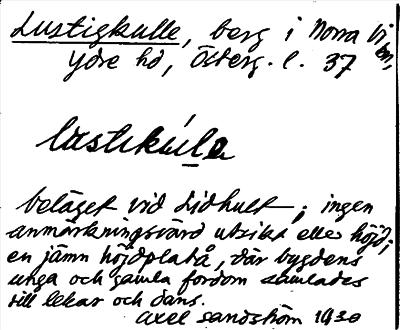 Lustigkulle, berg i Norra Vi
Ydre hd, Österg. l. 37
lustikúla
beläget vid Lidhult; ingen
anmärkningsvärd utsikt eller höjd;
en jämn höjdplatå, där bygdens
unga och gamla fordom samlades
till lekar och dans.
Axel Sandström 1930